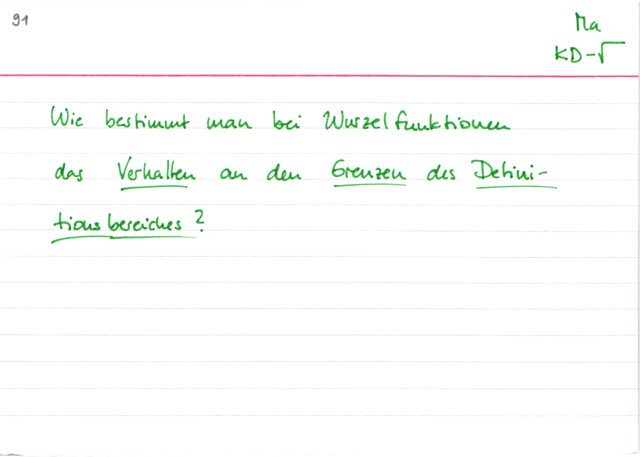 91
Ma
KD-√
Wie bestimmt man bei Wurzelfunktionen
das Verhalten an den Grenzen des Defini-
tionsbereiches?